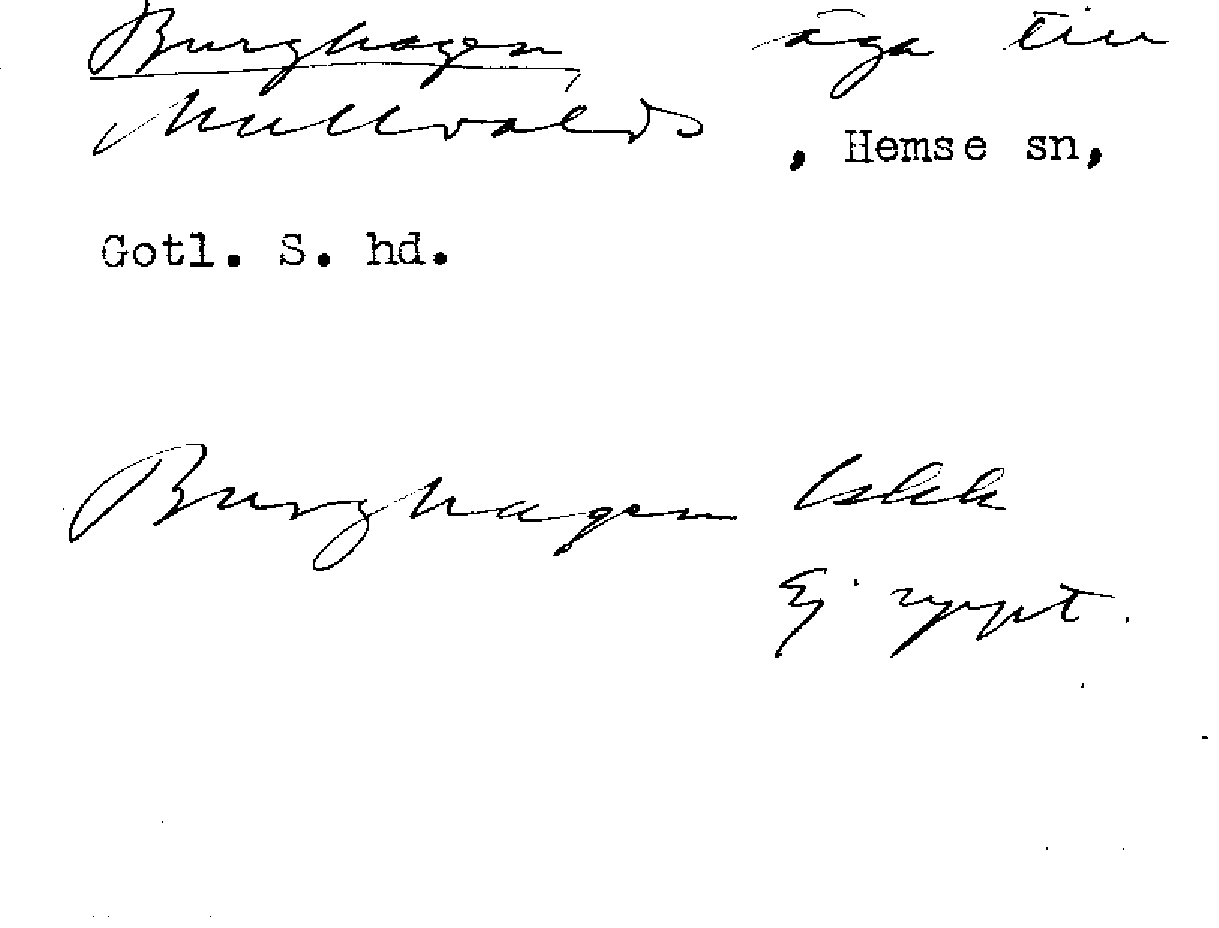 Burghagen, äga till
Mullvalds, Hemse sn,
Gotl. S. hd.
Burghagen Lskk
Ej rypt.